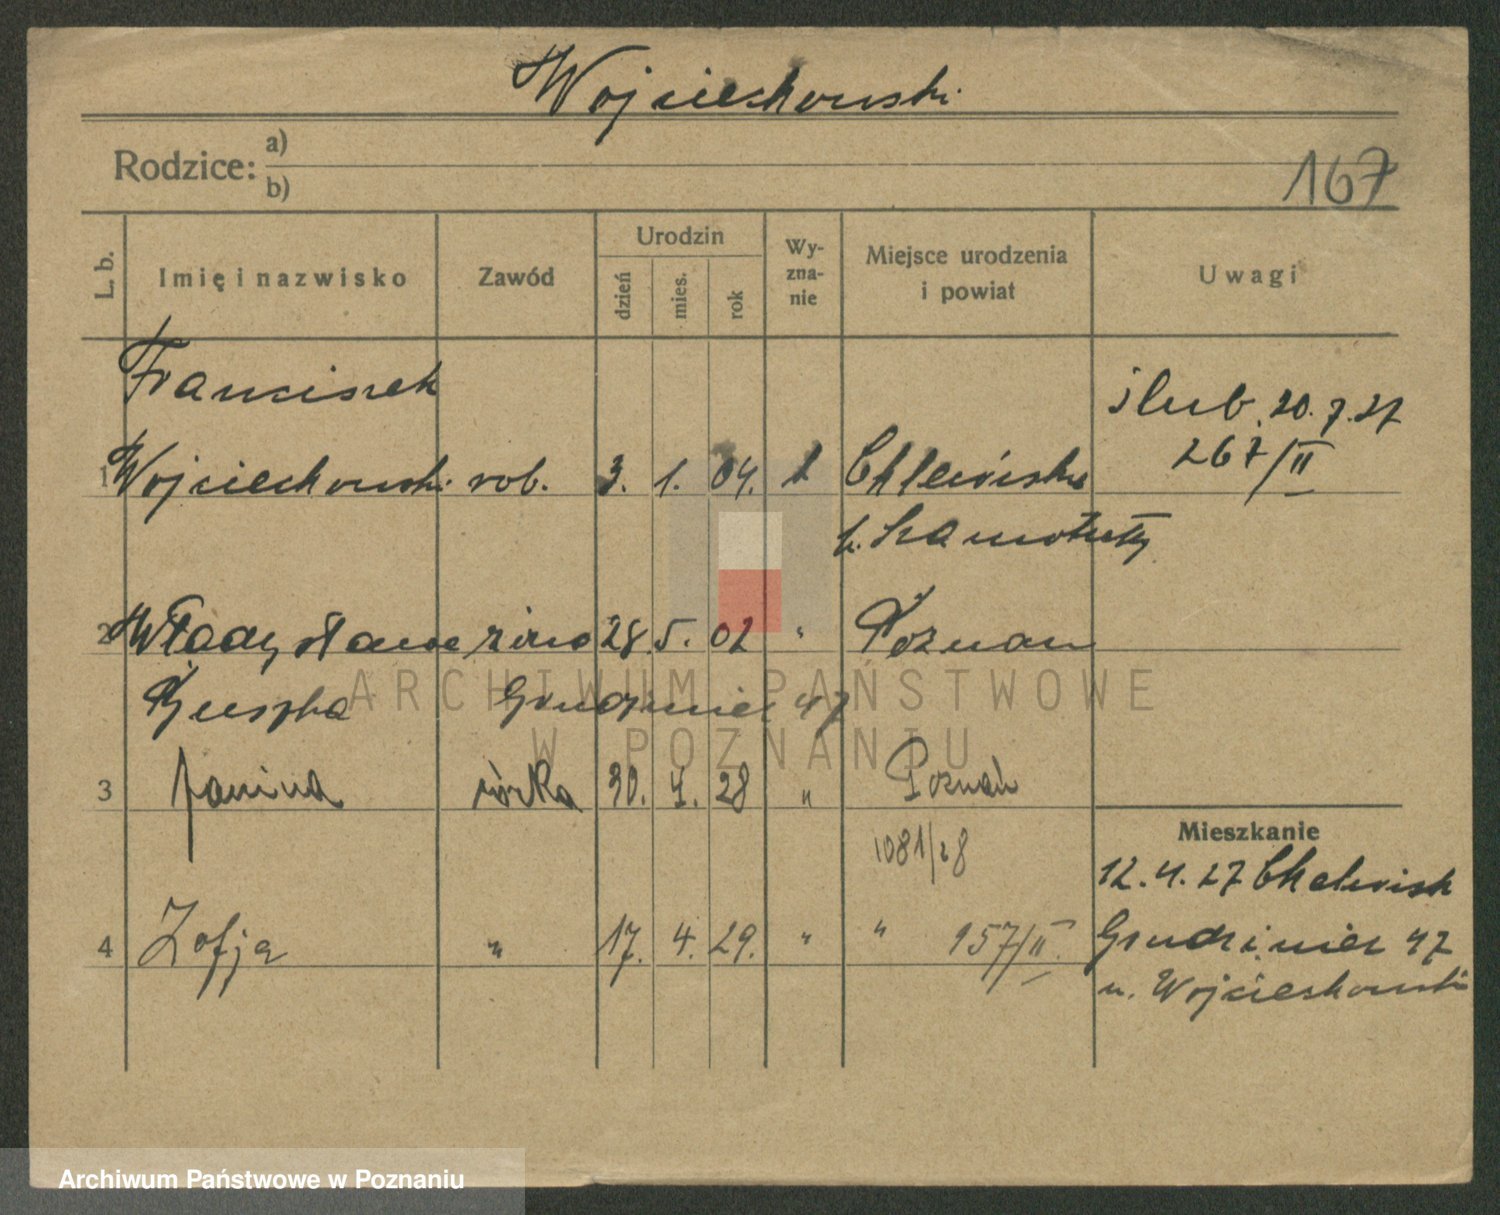 Wojciechowski
Rodzice: a)
b)
167
L. b. Imię i nazwisko Zawód Urodzin dzień mies. rok Wy-zna-nie Miejsce urodzenia i powiat Uwagi
Franciszek
ślub. 20.7.27
267/II
1 Wojciechowski rob. 3. 1. 04. Chlewiska
p. Szamotuły
2 Władysława żona 28. 5. 02 " Poznań
Grudzieniec 47
3 Janina córka 30. 4. 28 " Poznań
1081/28
Mieszkanie
12.4.27
4 Zofja " 17. 4. 29. " " 957/II.
Grudzieniec 47
u. Wojciechowski
ARCHIWUM PAŃSTWOWE
W POZNANIU
Archiwum Państwowe w Poznaniu